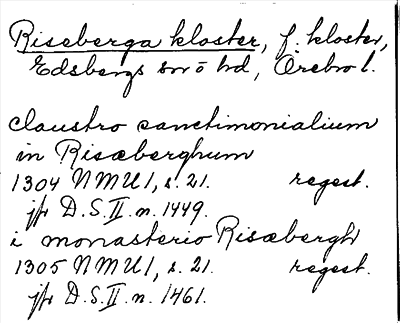 Riseberga kloster, f. kloster,
Edsbergs sn o hd, Örebro l.
claustro sanctimonialium
in Risæberghum
1304 NMU 1, s. 21. regest.
jfr D.S. II n. 1449.
i monasterio Risæbergh
1305 NMU 1, s. 21. regest.
jfr D.S. II. n. 1461.